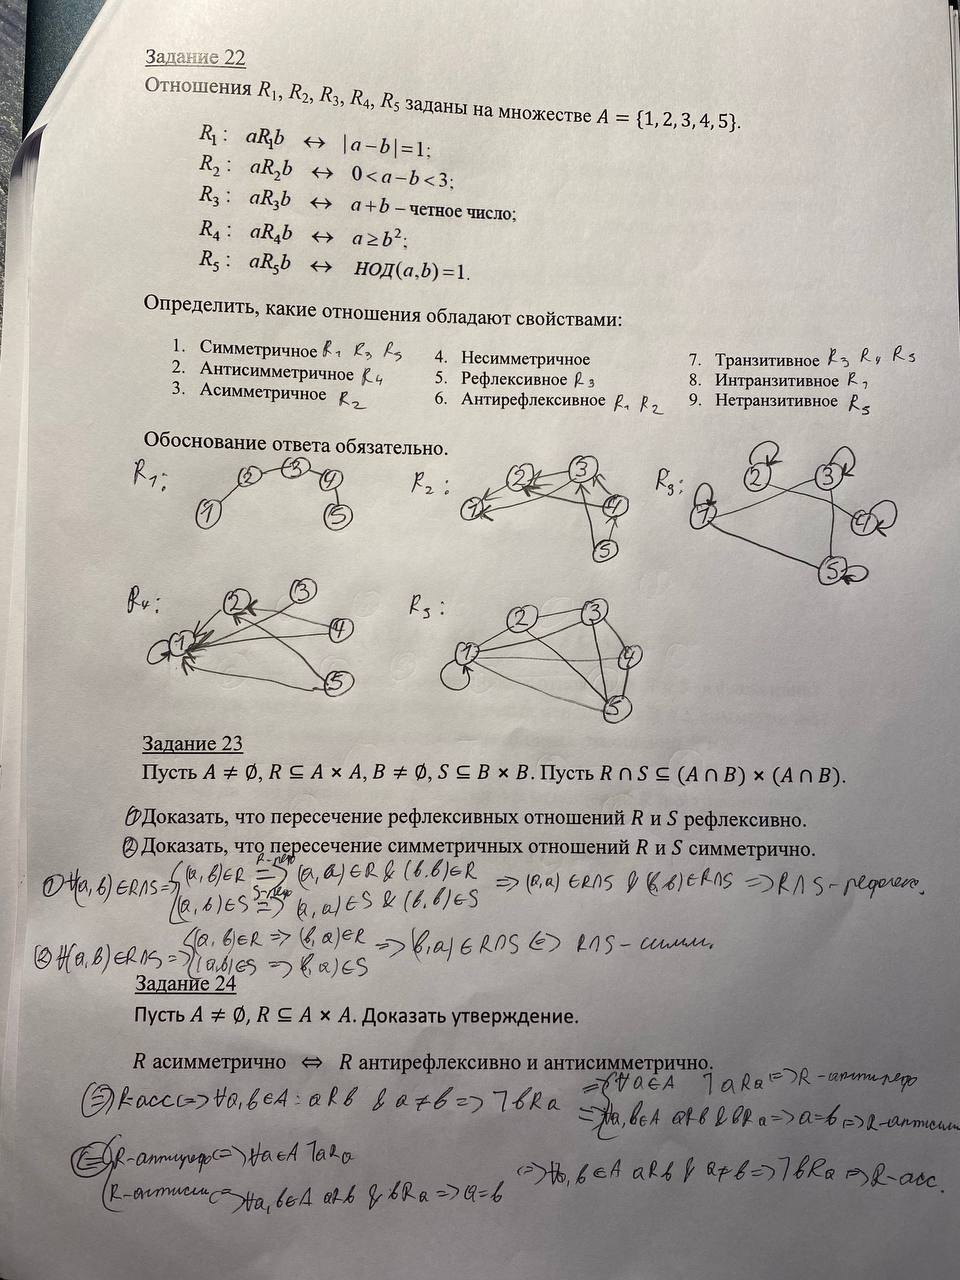 Задание 22
Отношения R₁, R₂, R₃, R₄, R₅ заданы на множестве A = {1, 2, 3, 4, 5}.
R₁ : aR₁b ↔ |a − b| = 1;
R₂ : aR₂b ↔ 0 < a − b < 3;
R₃ : aR₃b ↔ a + b − четное число;
R₄ : aR₄b ↔ a ≥ b²;
R₅ : aR₅b ↔ НОД(a,b) = 1.
Определить, какие отношения обладают свойствами:
1. Симметричное R₁ R₃ R₅
2. Антисимметричное R₄
3. Асимметричное R₂
4. Несимметричное
5. Рефлексивное R₃
6. Антирефлексивное R₁ R₂
7. Транзитивное R₃ R₄ R₅
8. Интранзитивное R₁
9. Нетранзитивное R₅
Обоснование ответа обязательно.
R₁: 1 2 3 4 5
R₂: 1 2 3 4 5
R₃: 1 2 3 4 5
R₄: 1 2 3 4 5
R₅: 1 2 3 4 5
Задание 23
Пусть A ≠ ∅, R ⊆ A × A, B ≠ ∅, S ⊆ B × B. Пусть R ∩ S ⊆ (A ∩ B) × (A ∩ B).
① Доказать, что пересечение рефлексивных отношений R и S рефлексивно.
② Доказать, что пересечение симметричных отношений R и S симметрично.
① ∀(a, b) ∈ R∩S => { (a, b) ∈ R R-реф => (a, a) ∈ R & (b, b) ∈ R => (a, a) ∈ R∩S & (b, b) ∈ R∩S => R∩S - рефлекс.
(a, b) ∈ S S-реф => (a, a) ∈ S & (b, b) ∈ S
② ∀(a, b) ∈ R∩S => { (a, b) ∈ R => (b, a) ∈ R => (b, a) ∈ R∩S <=> R∩S - симм.
(a, b) ∈ S => (b, a) ∈ S
Задание 24
Пусть A ≠ ∅, R ⊆ A × A. Доказать утверждение.
R асимметрично ⇔ R антирефлексивно и антисимметрично.
(=>) R-асс <=> ∀a, b ∈ A : aRb & a ≠ b => ¬bRa => { ∀a ∈ A ¬aRa <=> R-антиреф
=> ∀a, b ∈ A aRb & bRa => a = b <=> R-антисим
(<=) { R-антиреф <=> ∀a ∈ A ¬aRa
R-антисим <=> ∀a, b ∈ A aRb & bRa => a = b
<=> ∀a, b ∈ A aRb & a ≠ b => ¬bRa => R-асс.